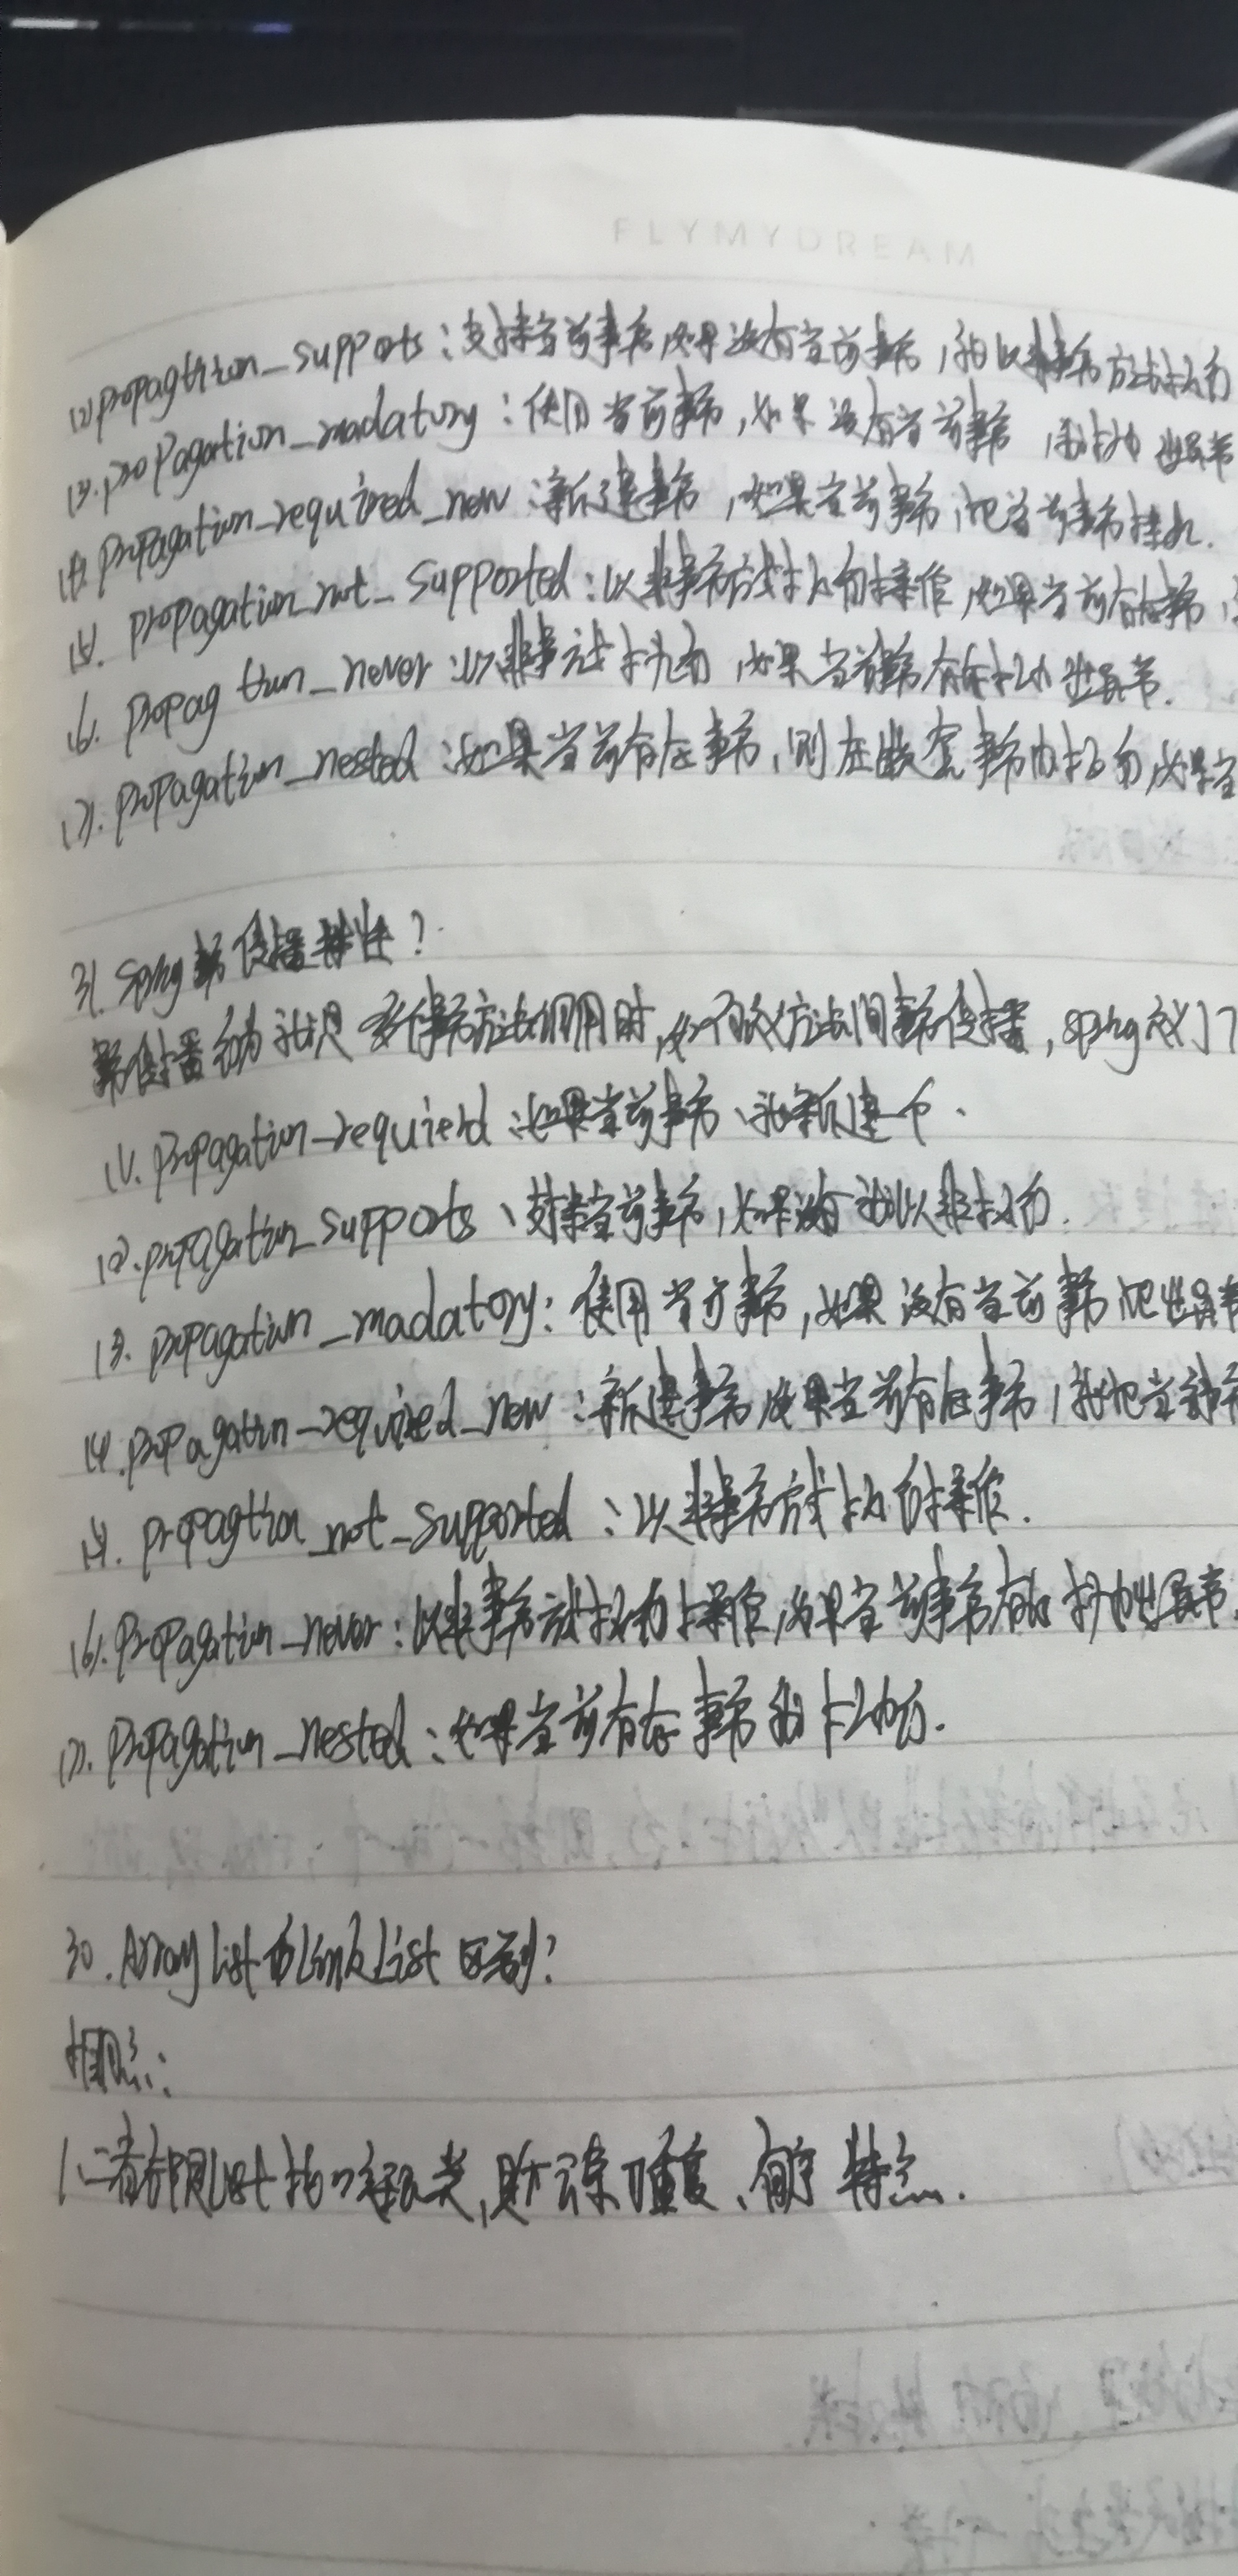 FLYMYDREAM
(2) propagation_supports：支持当前事务，如果没有当前事务，就以非事务方式执行
(3). propagation_madatory：使用当前事务，如果没有当前事务，就抛出异常
(4). propagation_required_new：新建事务，如果当前事务，把当前事务挂起.
(5). propagation_not_supported：以非事务方式执行操作，如果当前存在事务，
(6). propagtion_never：以非事务方式执行，如果当前事务存在抛出异常.
(7). propagation_nested：如果当前存在事务，则在嵌套事务内执行，如果当
31. Spring事务传播特性？
事务传播行为就是多个事务方法调用时，如何定义方法间事务传播，spring定义了7
(1). propagation_requierd：如果当前事务、就新建一个、
(2). propagation_supports、支持当前事务，如果没有就以非执行.
(3). propagation_madatory：使用当前事务，如果没有当前事务抛出异常
(4). propagation_required_new：新建事务，如果当前存在事务，就把当前事务
(5). propagtion_not_supported：以非事务方式执行操作.
(6). propagation_never：以非事务方式执行操作，如果当前事务存在抛出异常.
(7). propagation_nested：如果当前存在事务则执行.
30. ArrayList和LinkList区别？
相同点：
1、二者都是List接口实现类，具有元素可重复、有序特点.